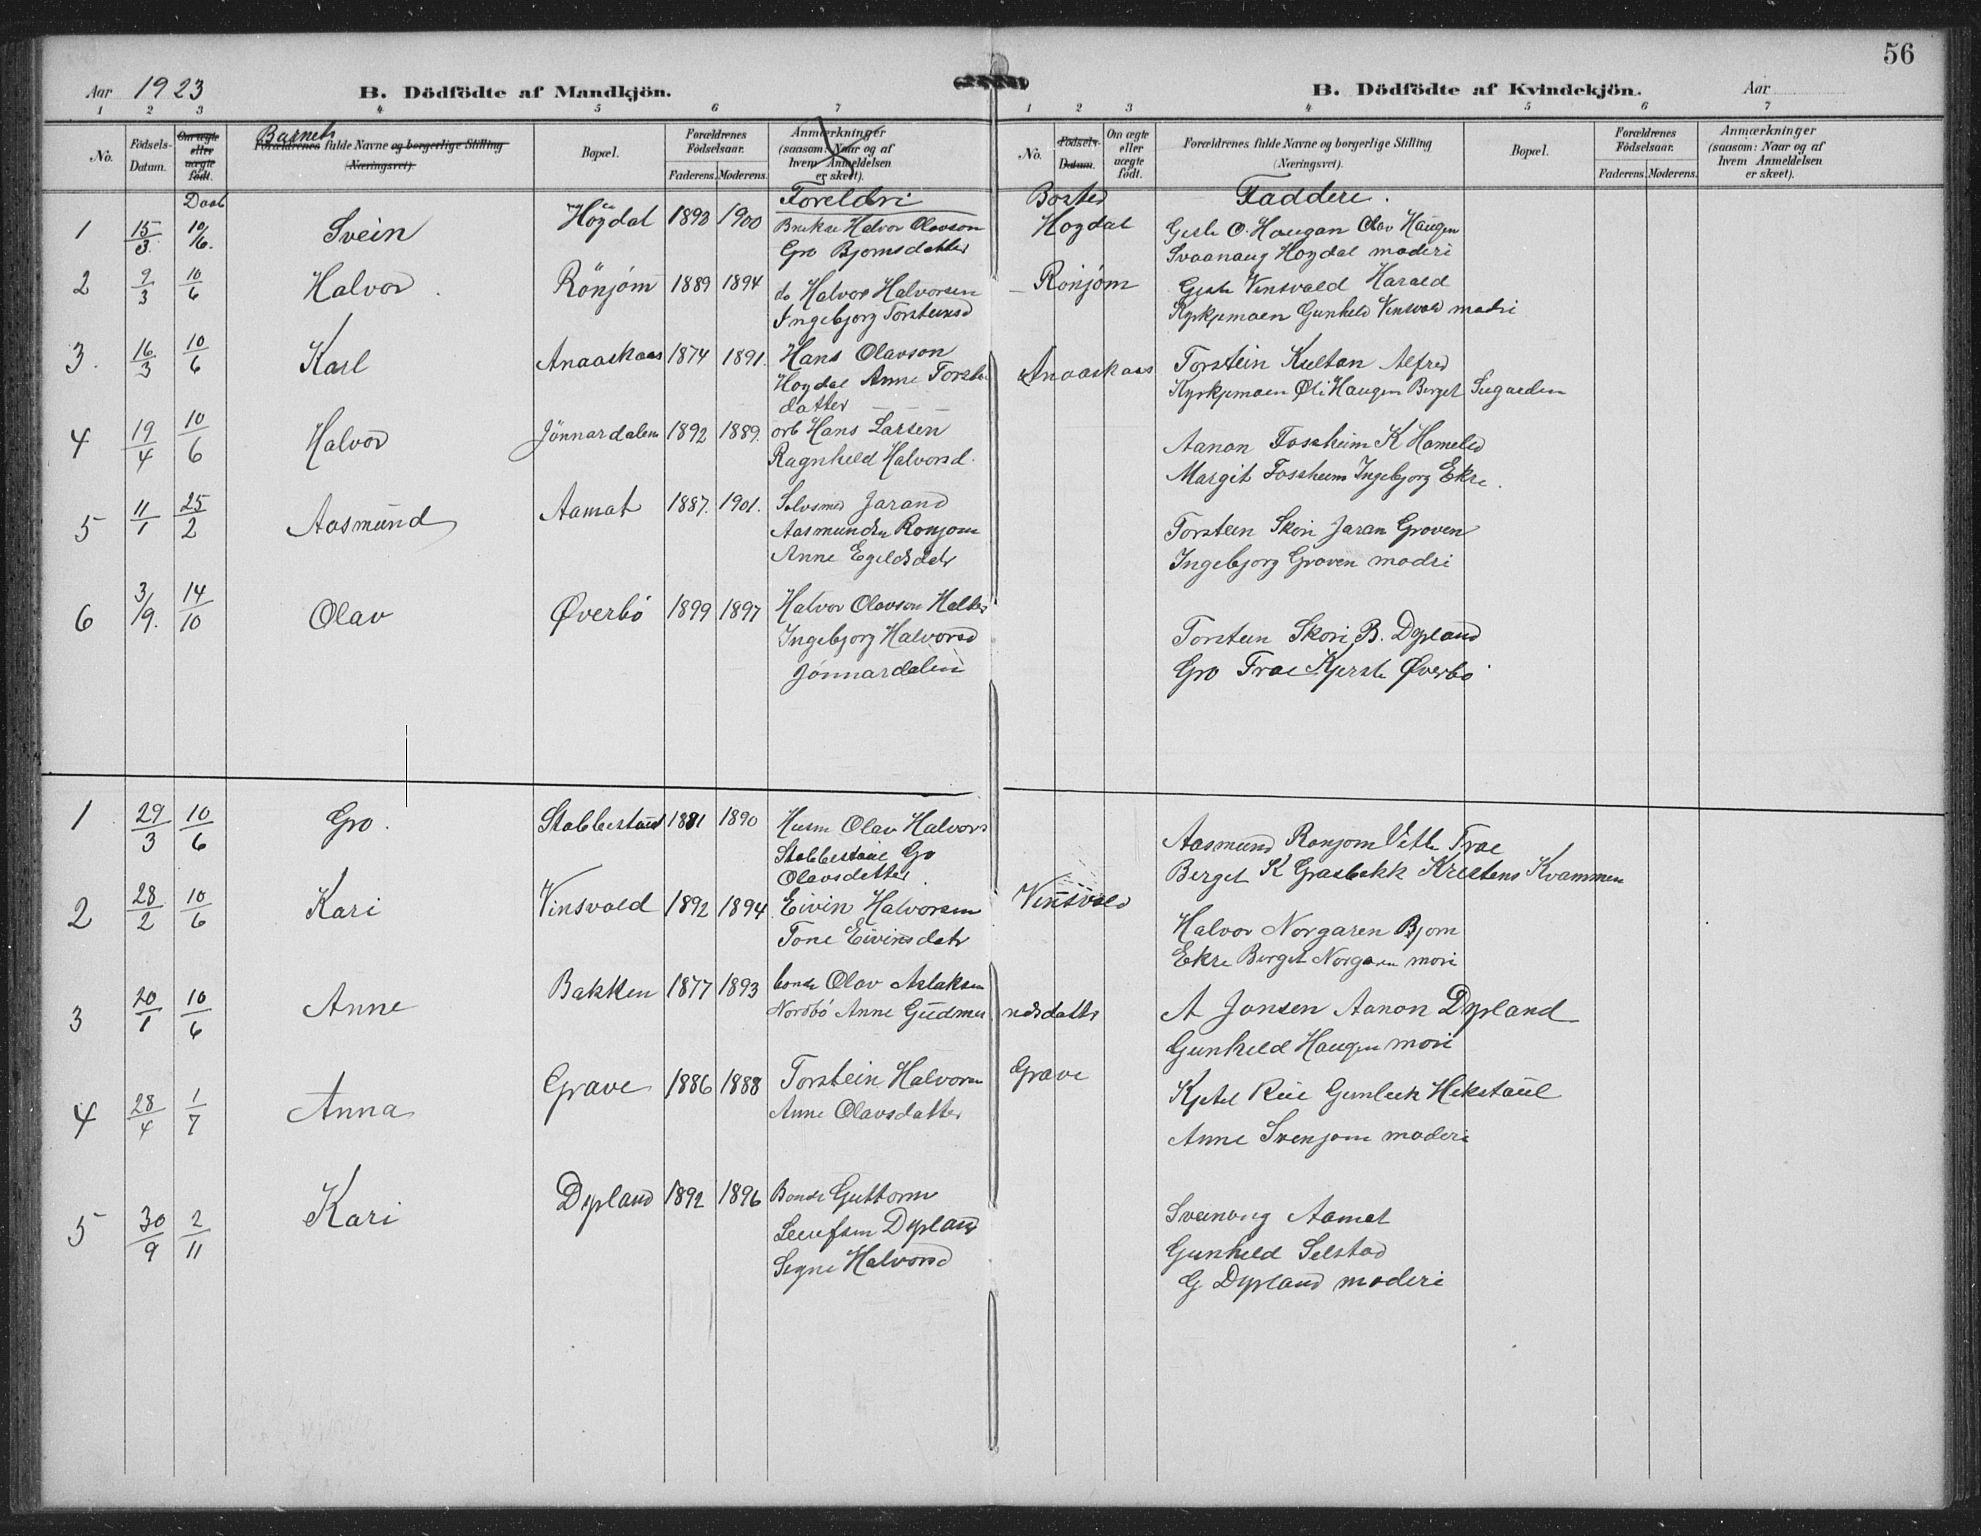 56
Aar 1923
B. Dödfödte af Mandkjön.
B. Dödfödte af Kvindekjön.
Aar
1 2 3 4 5 6 7
1 2 3 4 5 6 7
No.
Födsels-Datum.
Om ægte eller uægte födt.
Daab
Barnets
Forældrenes fulde Navne og borgerlige Stilling
(Næringsvei).
Bopæl.
Forældrenes Födselsaar.
Faderens. Moderens.
Anmærkninger
(saasom: Naar og af
hvem Anmeldelsen
er skeet).
Foreldri
No.
Födsels-Datum.
Om ægte eller uægte födt.
Forældrenes fulde Navne og borgerlige Stilling
(Næringsvei).
Bopæl.
Forældrenes Födselsaar.
Faderens. Moderens.
Anmærkninger
(saasom: Naar og af
hvem Anmeldelsen
er skeet).
Bosted
Faddere.
1 15/3 10/6. Svein Höydal 1893 1900 Halvor Olavson
Gro Bjornsdatter
Hoydal
O. Haugan Olav Haugen
Hoydal moderi
2 9/3 10/6 Halvor Rönjöm 1889 1894 do Halvor Halvorsen
Ingebjorg Torsteinsd
Ronjöm
Vinsvald Harald
Kyrkjemoen Gunhild Vinsvald modri
3. 16/3 10/6 Karl Anaaskaas 1874 1891. Hans Olavson
Hoydal Anne Torste
datter
Anaaskaas
Torstein Kultan Alfred
Kyrkjemoen Øli Haugen Berget Sugarden
4 19/4 10/6 Halvor Jönnardalen 1892 1889. arb Hans Larsen
Ragnhild Halvorsd.
Aanon Fossheim K Homeled
Margit Fossheim Ingebjorg Ekre.
5 11/1 25/2 Aasmund Aamat 1887. 1901. Jarand
Aasmundsen Ronjom
Anne Egilds datr
Torstein Skori Jaran Groven
Ingebjorg Groven modri
6 3/9. 14/10 Olav Øverbö 1899 1897 Halvor Olavson
Ingebjorg Halvorsd
Jönnardalen
Torstein Skori B. Dyrland
Gro Trae Kjersti Øverbö
1 29/3 10/6 Gro. Stabbestaul 1881 1890 Husm Olav Halvors
Stabbestaul Gro
Olavsdatter.
Aasmund Ronjom Vetle Trae
Berget K Grasbekk Kristens Kvammen
2 28/2 10/6 Kari Vinsvald 1892 1894 Eivin Halvorsen
Tone Eivinsdatr
Vinsvald
Halvor Norgaren Bjorn
Ekre Berget Norgaren mori
3 20/1 10/6 Anne Bakken 1877 1893 bonde Olav Aslaksen
Nordbö Anne Gudmu ndsdattr
A Jonsen Aanon Dyrland
Gunhild Haugen mori
4 28/4 1/7 Anna Grave 1886 1888 Torstein Halvorsn
Anne Olavsdatter
Grave
Kjetel Rue Gunleik Hekstaul
Anne Svenjom moderi
5 30/9 2/11 Kari Dyrland 1892 1896 Bonde Guttorm
Leiufsen Dyrland
Signe Halvorsd
Sveinung Aamot
Gunhild Selstad
G Dyrland moderi